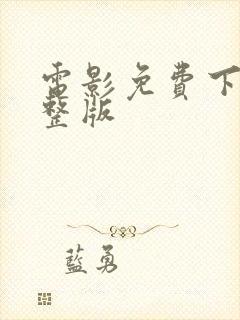 電影免費下
整版
藍勇